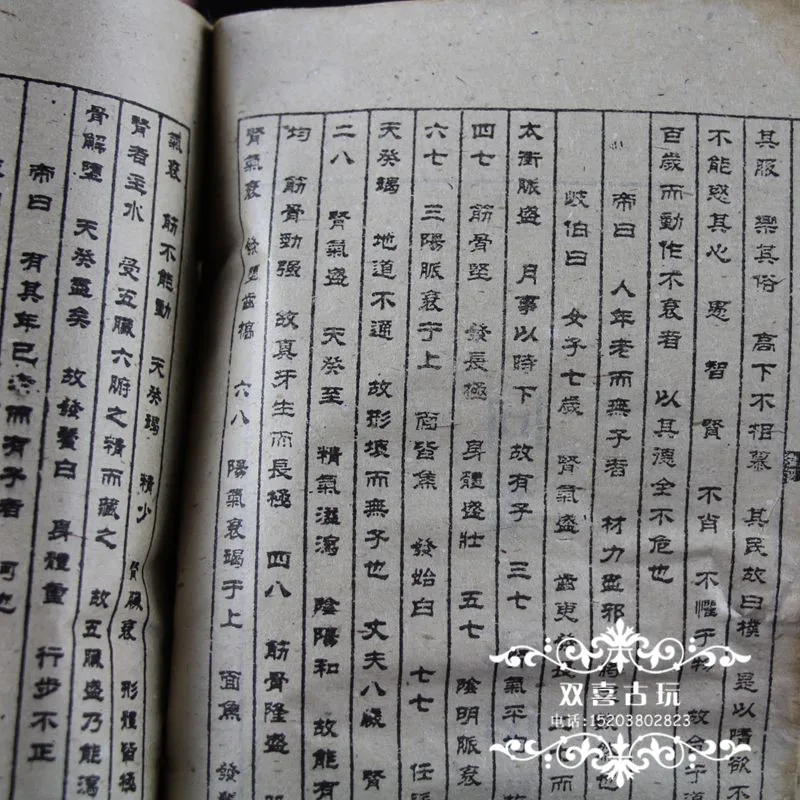 其服 樂其俗 高下不相慕 其民故曰樸 是以嗜欲不
不能惑其心 愚 智 賢 不肖 不懼于物 故合于道
百歲而動作不衰者 以其德全不危也
帝曰 人年老而無子者 材力盡邪
歧伯曰 女子七歲 腎氣盛 齒更 長
太衝脈盛 月事以時下 故有子 三七 氣平均
四七 筋骨堅 發長極 身體盛壯 五七 陰明脈衰
六七 三陽脈衰于上 面皆焦 發始白 七七 任脈
天癸竭 地道不通 故形壞而無子也 丈夫八歲 腎
二八 腎氣盛 天癸至 精氣溢瀉 陰陽和 故能有
均 筋骨勁强 故真牙生而長極 四八 筋骨隆盛
腎氣衰 發墮齒槁 六八 陽氣衰竭于上 面焦 發鬢
氣衰 筋不能動 天癸竭 精少 腎臟衰 形體皆極
腎者主水 受五臟六腑之精而藏之 故五臟盛乃能瀉
骨解墮 天癸盡矣 故發鬢白 身體重 行步不正
帝曰 有其年已老而有子者 何也
双喜古玩
电话:15203802823